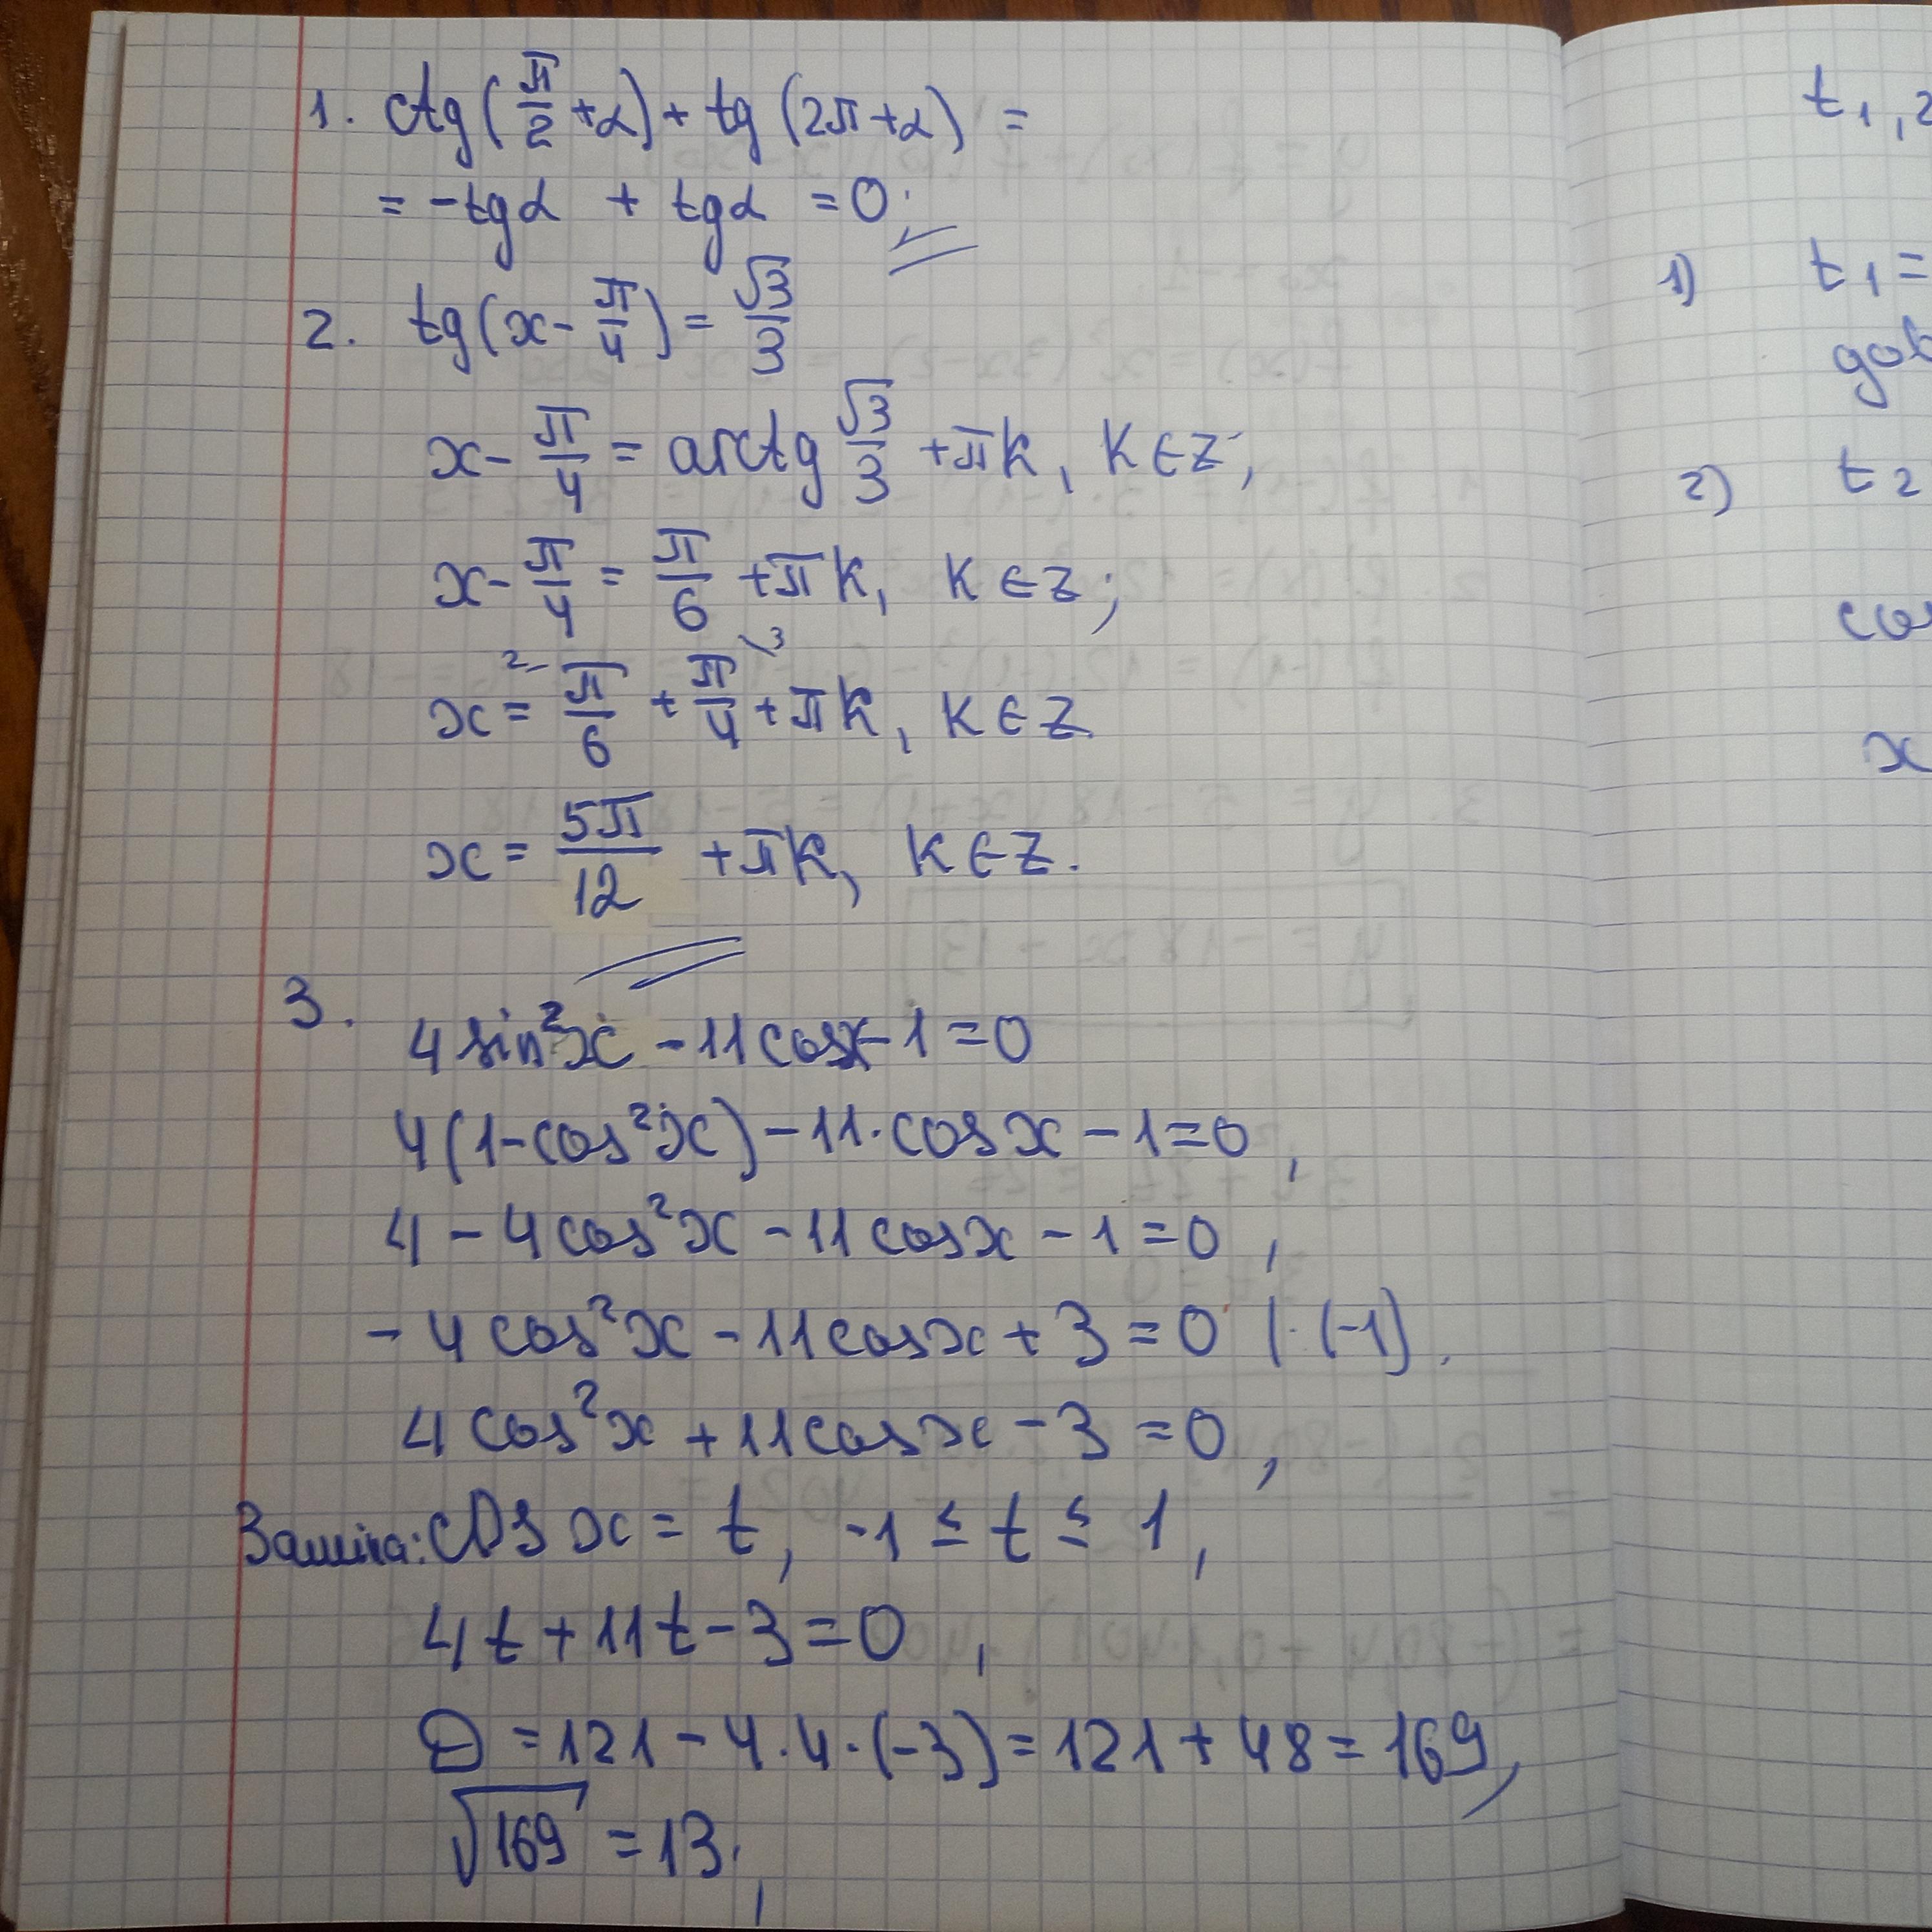 1. ctg(π/2 + α) + tg(2π + α) =
= -tgα + tgα = 0.
2. tg(x - π/4) = √3/3
x - π/4 = arctg √3/3 + πk, k ∈ Z;
x - π/4 = π/6 + πk, k ∈ Z;
x = ²⁻π/6 + π/4 \³ + πk, k ∈ Z.
x = 5π/12 + πk, k ∈ Z.
3.
4 sin²x - 11 cosx - 1 = 0
4(1 - cos²x) - 11·cosx - 1 = 0,
4 - 4cos²x - 11cosx - 1 = 0,
-4cos²x - 11cosx + 3 = 0 |·(-1).
4cos²x + 11cosx - 3 = 0,
Заміна: cos x = t, -1 ≤ t ≤ 1,
4t + 11t - 3 = 0,
D = 121 - 4·4·(-3) = 121 + 48 = 169,
√169 = 13,
t₁,₂
1) t₁ =
2) t₂
cos
x